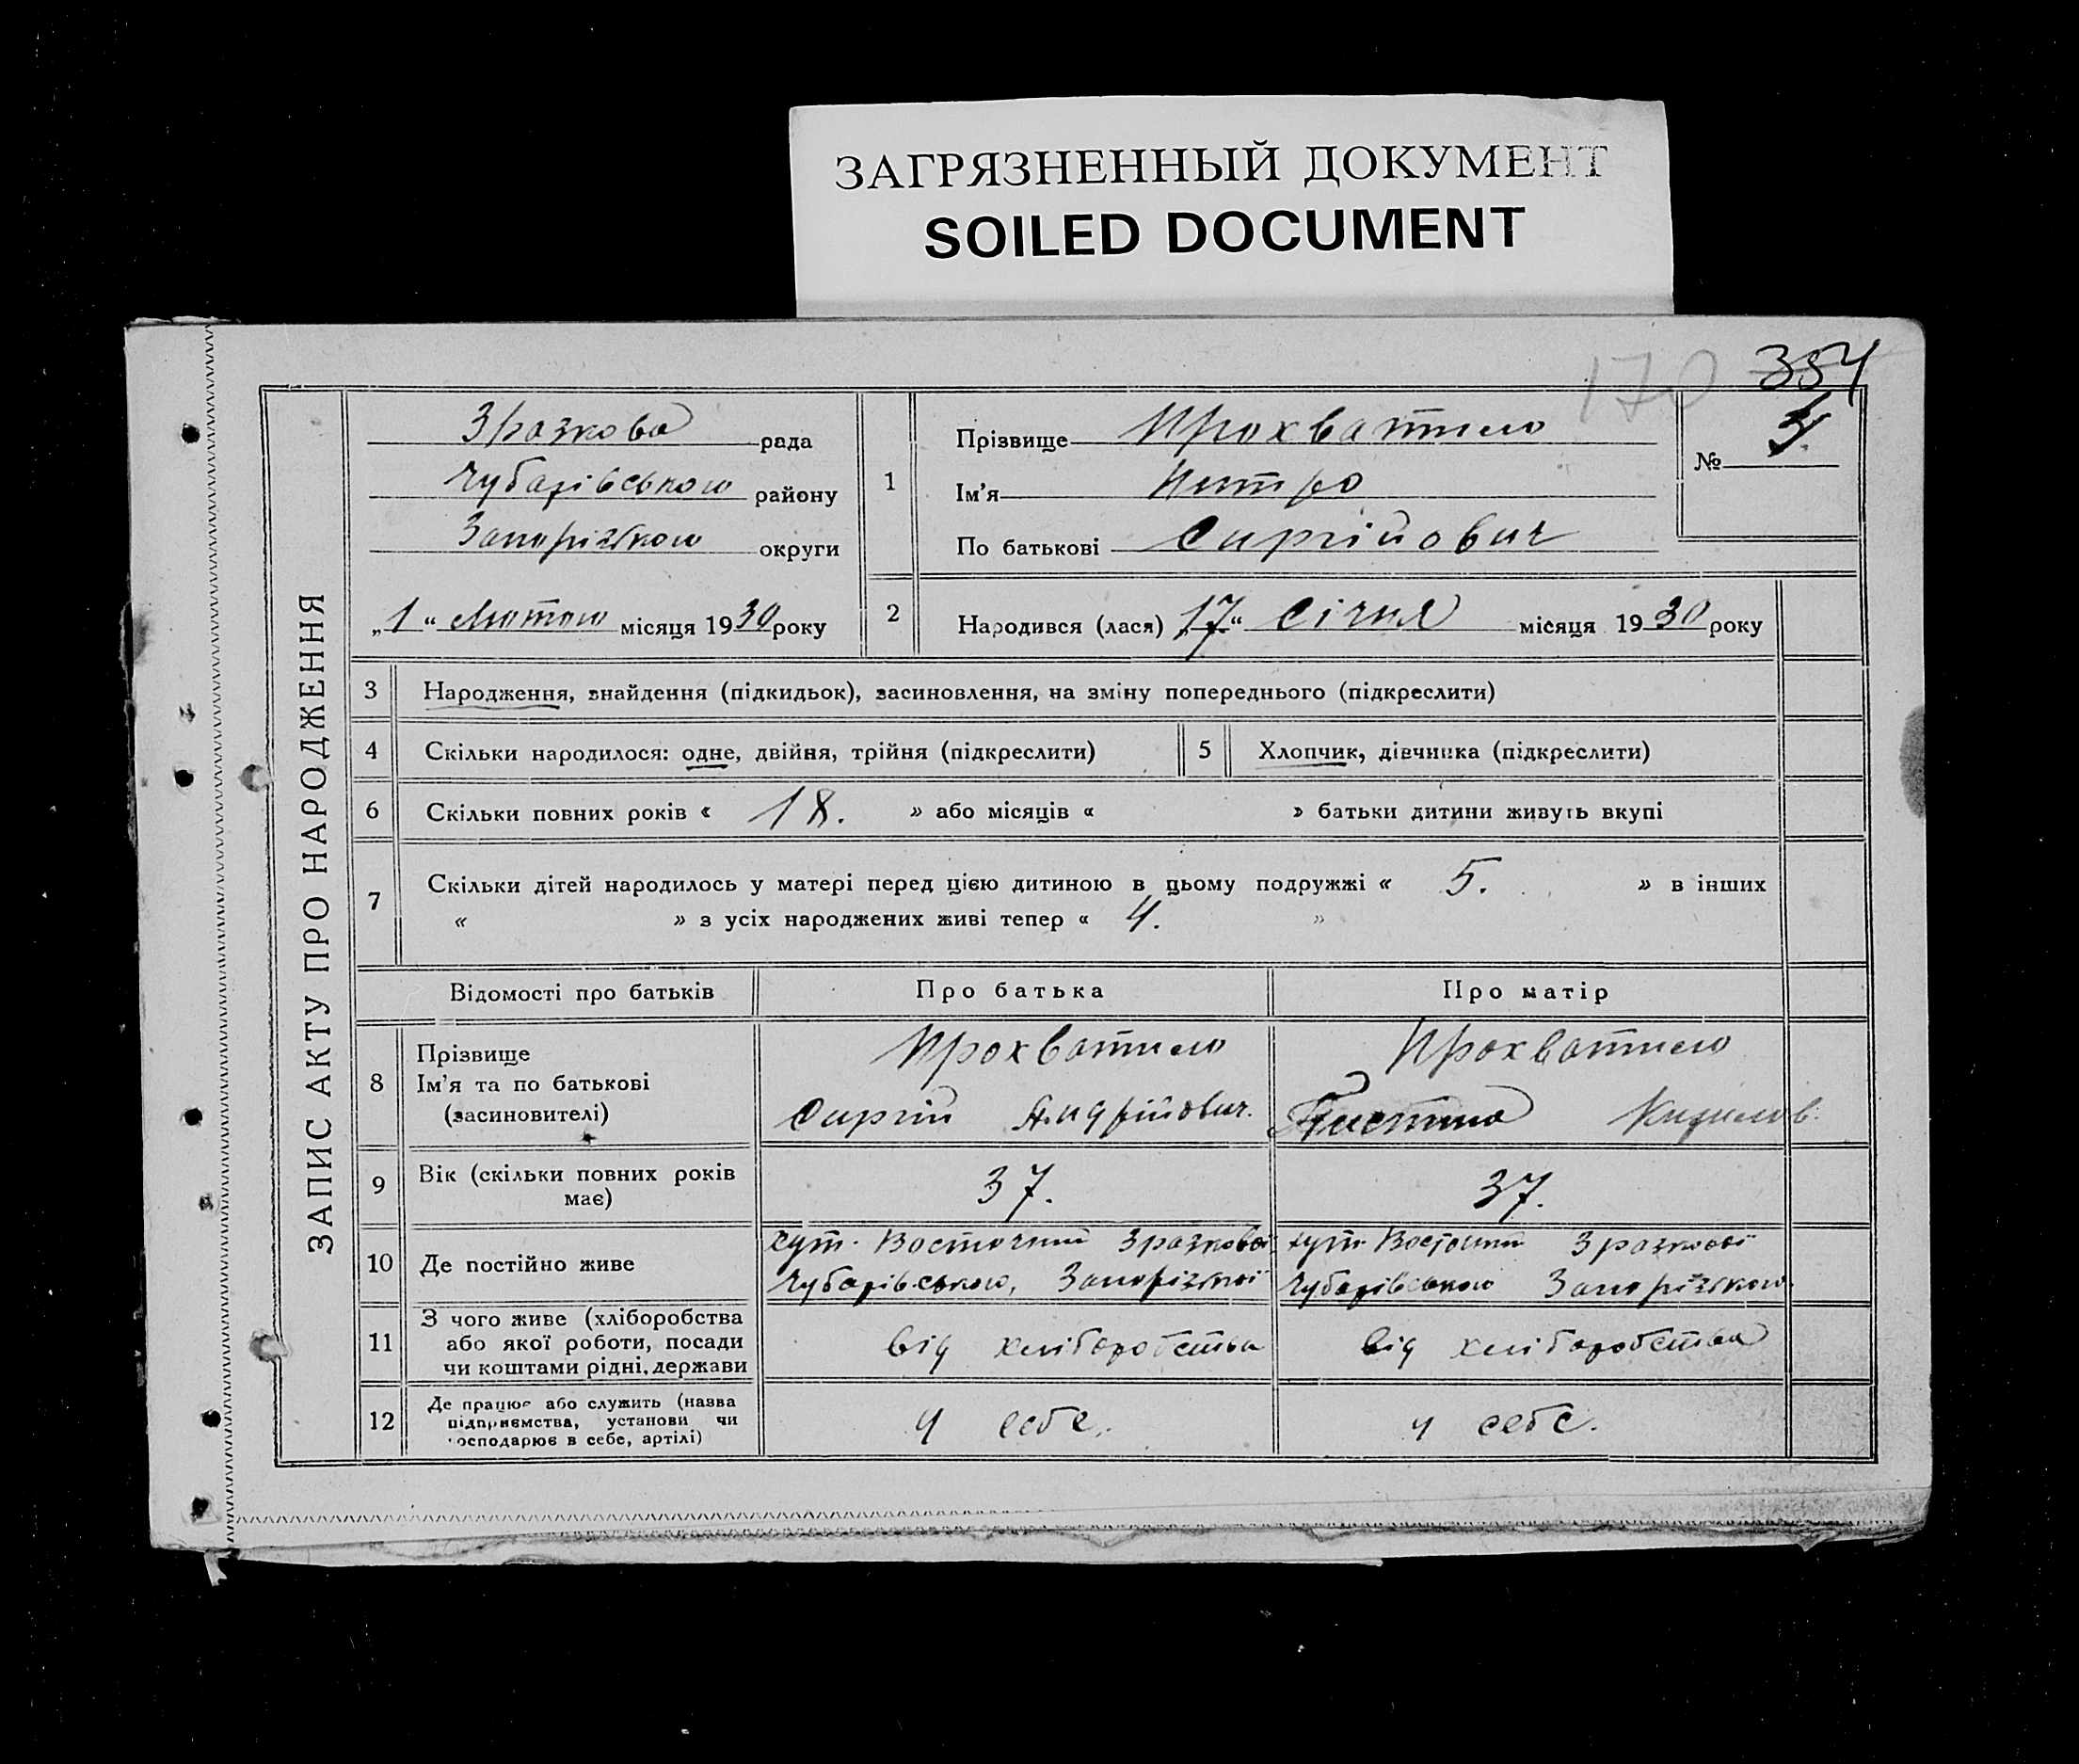 ЗАГРЯЗНЕННЫЙ ДОКУМЕНТ
SOILED DOCUMENT
170 354
ЗАПИС АКТУ ПРО НАРОДЖЕННЯ
Зразкова рада
Чубарівського району
Запорізького округи
„1“ Лютого місяця 1930 року
1
Прізвище Прохватило
Ім'я Петро
По батькові Сиргійович
№
2
Народився (лася) „17“ Січня місяця 1930 року
3 Народження, знайдення (підкидьок), засиновлення, на зміну попереднього (підкреслити)
4 Скільки народилося: одне, двійня, трійня (підкреслити)
5 Хлопчик, дівчинка (підкреслити)
6 Скільки повних років « 18. » або місяців « » батьки дитини живуть вкупі
7 Скільки дітей народилось у матері перед цією дитиною в цьому подружжі « 5. » в інших
« » з усіх народжених живі тепер « 4. »
Відомості про батьків Про батька Про матір
8 Прізвище
Ім'я та по батькові
(засиновителі)
Прохватило
Сиргій Андрійович.
Прохватило
9 Вік (скільки повних років
має)
37.
37.
10 Де постійно живе
хут. Восточний Зразкової
Чубарівського, Запорізкої
хут. Восточний Зразкової
Чубарівського
11 З чого живе (хліборобства
або якої роботи, посади
чи коштами рідні, держави
від хліборобства
від хліборобства
12 Де працює або служить (назва
підприємства, установи чи
господарює в себе, артілі)
у себе.
у себе.